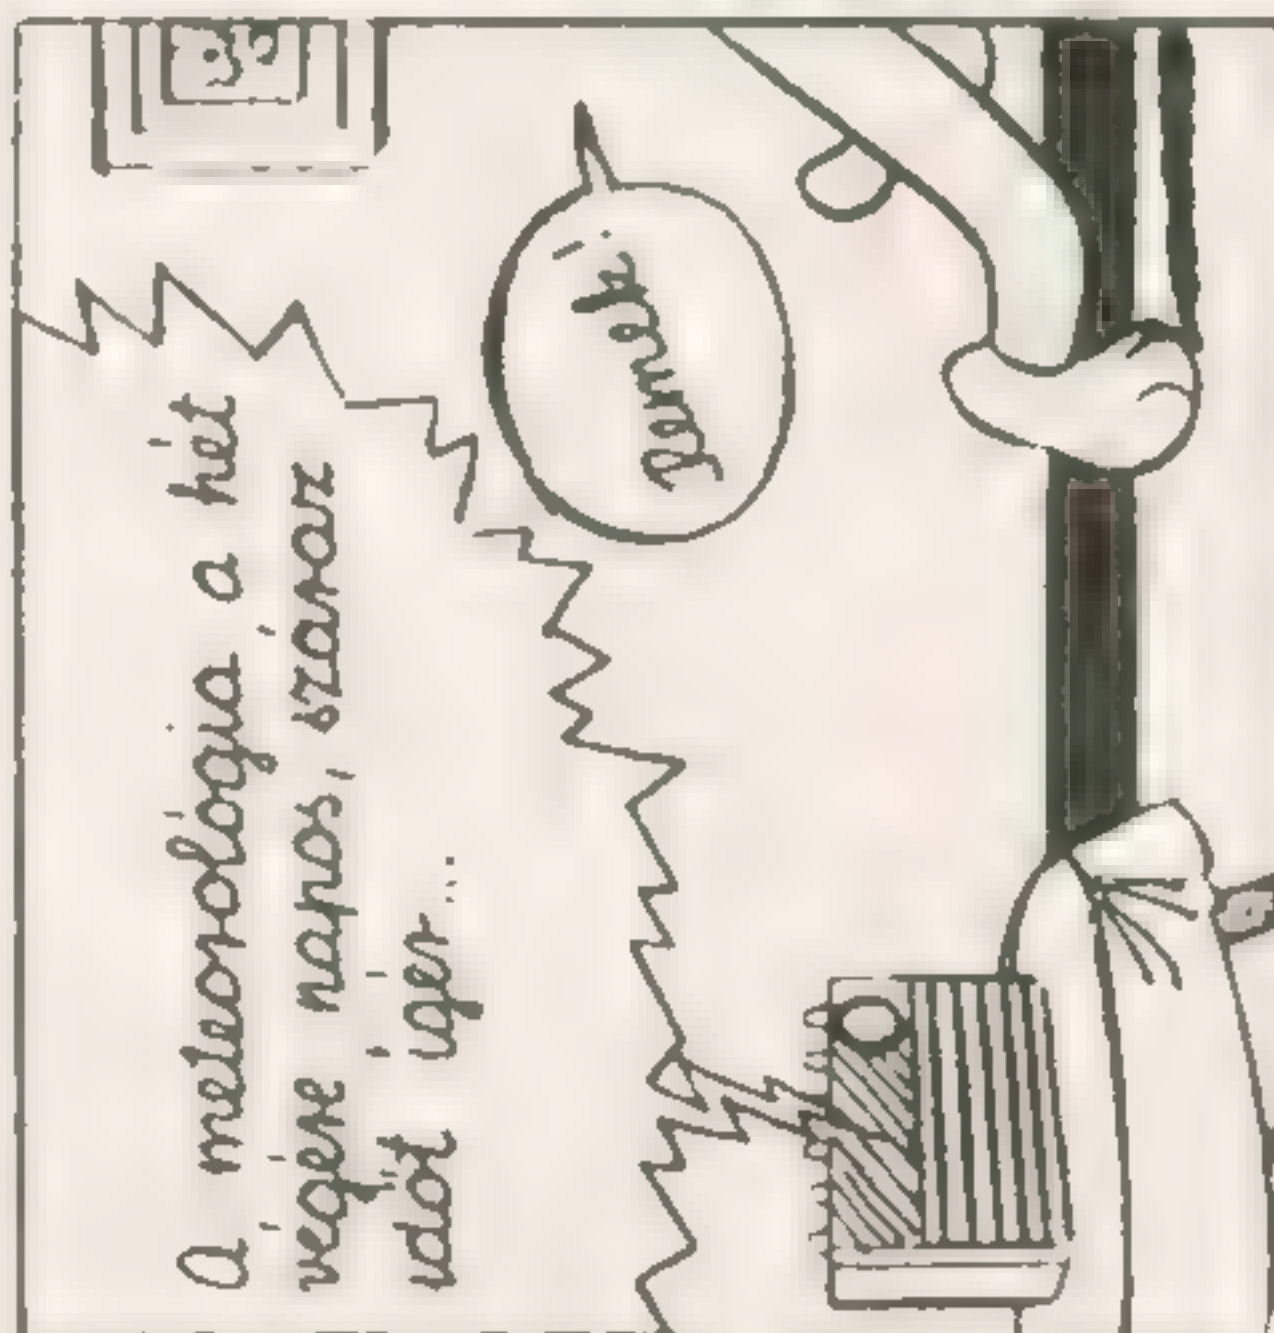 A meteorológia a hét
végére napos, száraz
időt ígér...
Remek!